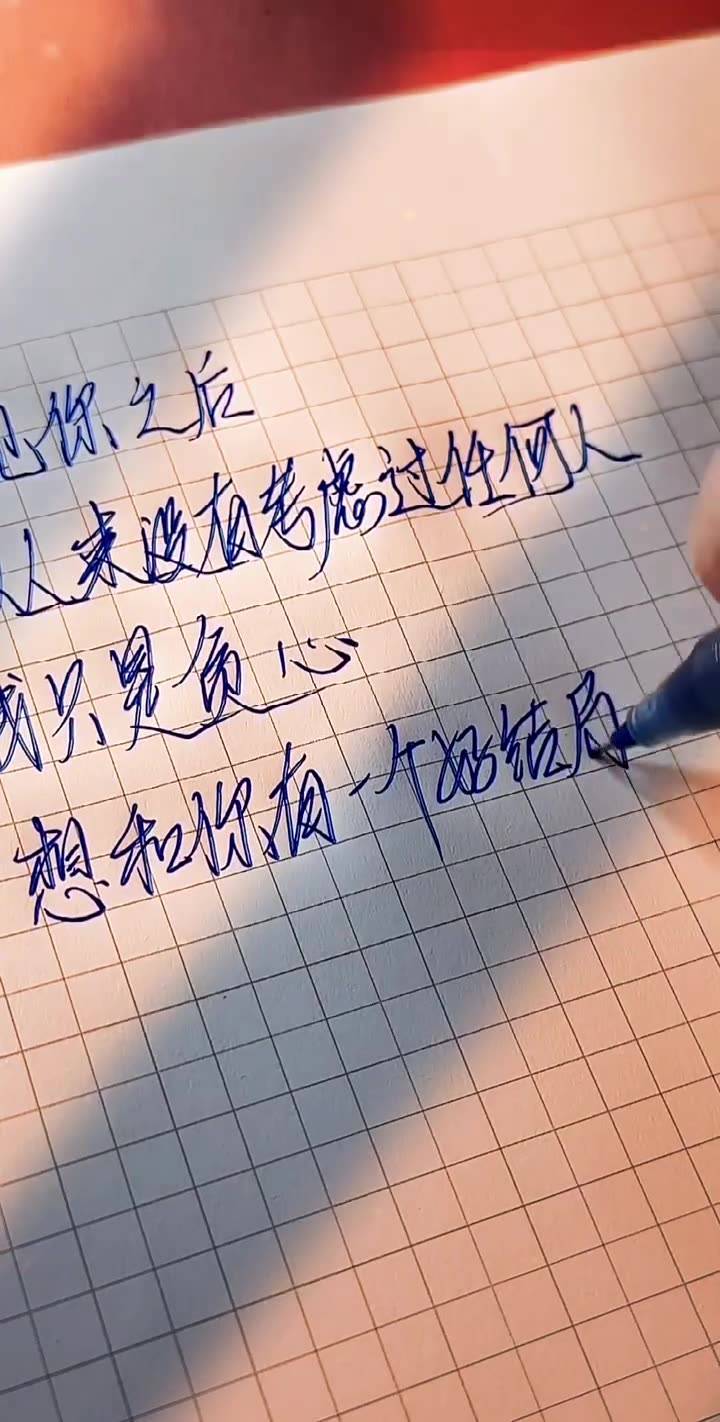 你之后
从来没有考虑过任何人
我只是贪心
想和你有一个好结局